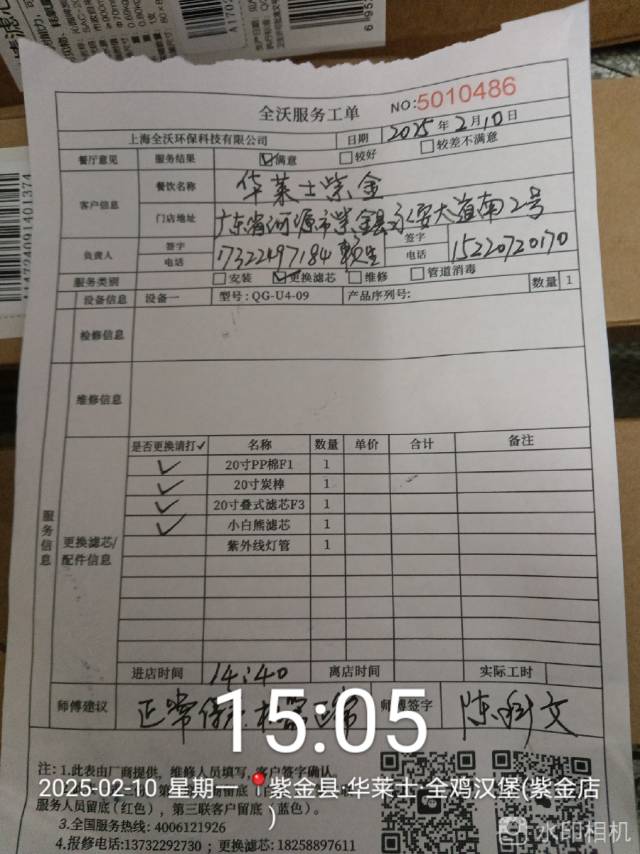 全沃服务工单
NO:5010486
上海全沃环保科技有限公司 日期 2025年2月10日
餐厅意见 服务结果 ☑满意 □较好 □较差不满意
客户信息 餐饮名称 华莱士紫金
门店地址 广东省河源市紫金县永安大道南2号
负责人 签字 电话 17322497184 赖生 签字 电话 15220720170
服务类别 □安装 ☑更换滤芯 □维修 □管道消毒
设备信息 设备一 型号:QG-U4-09 产品序列号: 数量 1
检修信息
维修信息
服务信息
更换滤芯/配件信息
是否更换请打✓ 名称 数量 单价 合计 备注
✓ 20寸PP棉F1 1
✓ 20寸炭棒 1
✓ 20寸叠式滤芯F3 1
✓ 小白熊滤芯 1
紫外线灯管 1
进店时间 14:40 离店时间 实际工时
师傅建议 正常保 正常 师傅签字 陈 文
15:05
注:1.此表由厂商提供,维修人员填写,客户签字确认。
2025-02-10 星期一 紫金县·华莱士·全鸡汉堡(紫金店)
服务人员留底(红色),第三联客户留底(蓝色)。
3.全国服务热线:4006121926
4.报修电话:13732292730 ; 更换滤芯:18258897611
水印相机
A11472409140​1374